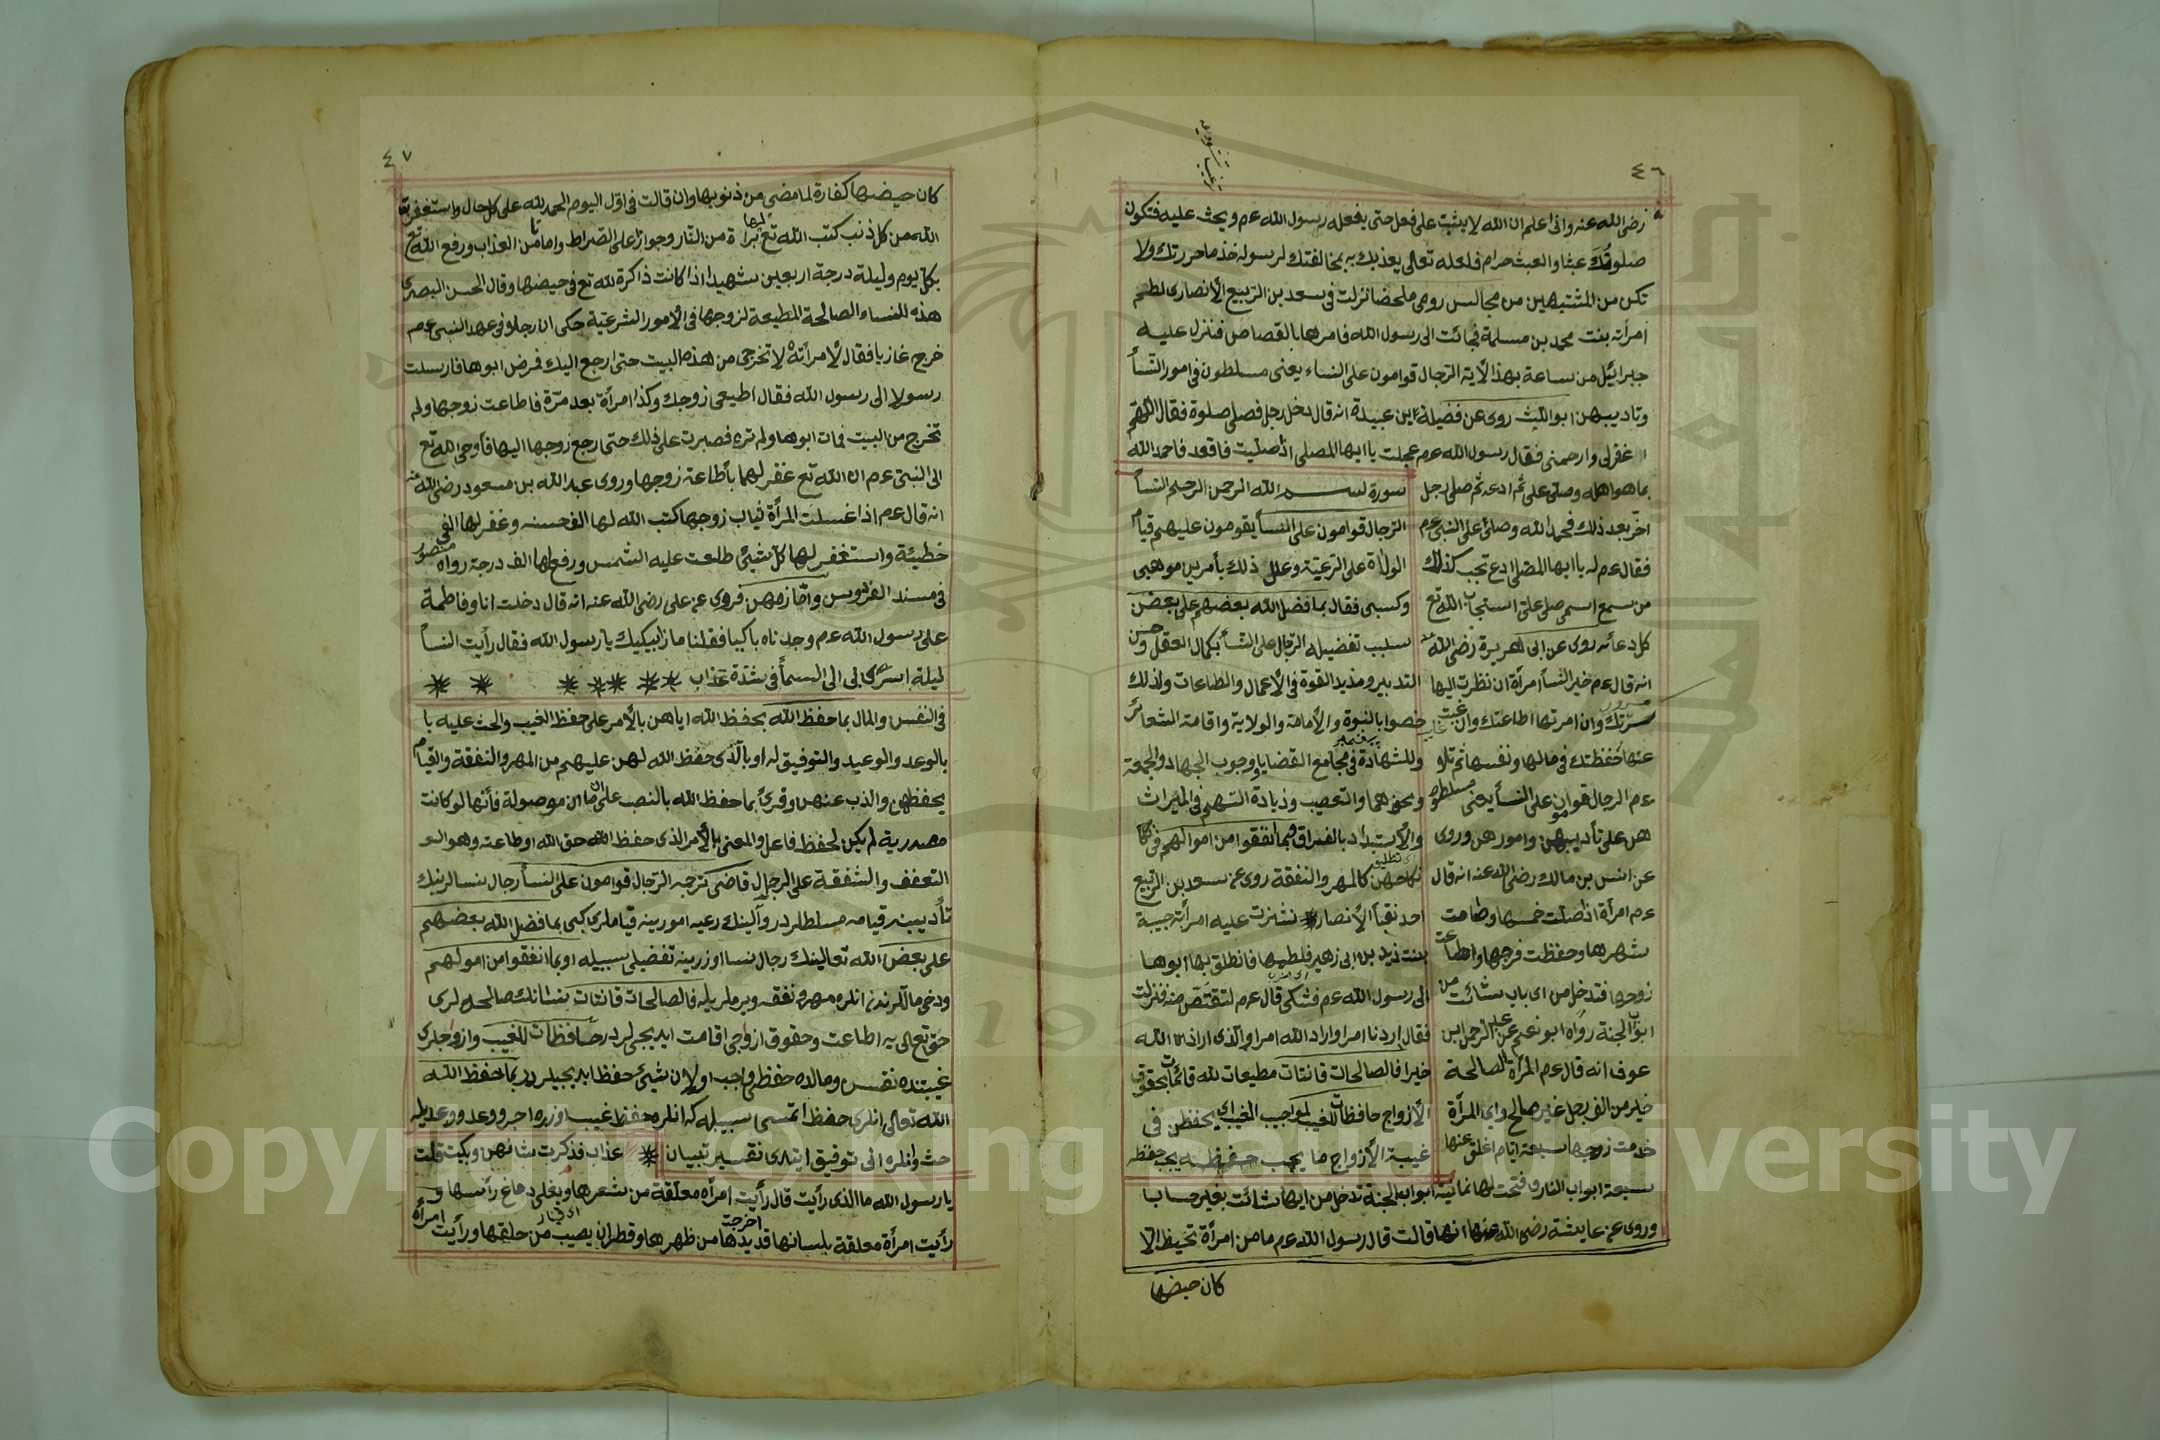 ٤٦
رضى الله عنه وانى اعلم ان الله لا يثبت على فعل حتى يفعله رسول الله عم ويحث عليه فتكون
صلوتك عبثا والعبث حرام فلعله تعالى يعذبك به بمخالفتك لرسوله خذ ما حررتك ولا
تكن من المشتبهين من مجالس رومى ملخصا نزلت فى سعد بن الربيع الأنصارى لطم
امرأته بنت محمد بن مسلمة فجائت الى رسول الله فامرها بالقصاص فنزل عليه
جبرائيل من ساعة بهذ الأية الرجال قوامون على النساء يعنى مسلطون فى امور النسأ
وتاديبهن ابو الليث روى عن فضيلة ابن عبيدة انه قال دخل رجل فصلى صلوة فقال اللهم
اغفرلى وارحمنى فقال رسول الله عم عجلت يا ايها المصلى اذا صليت فاقعد فاحمد الله
بما هو اهله وصلى على ثم ادعه ثم صلى رجل
اخر بعد ذلك فحمد الله وصلى على النبى عم
فقال عم له يا ايها المصلى ادع تجب كذلك
من سمع اسمى صلى على استجاب الله تع
كل دعائه روى عن ابى هريرة رضى الله عنه
انه قال عم خير النسأ امرأة ان نظرت اليها
سرتك وان امرتها اطاعتك وان غبت
عنها حفظتك فى مالها ونفسها ثم تلا
عم الرجال قوامون على النسأ يعنى مسلطون
هن على تأديبهن وامورهن وروى
عن انس بن مالك رضى الله عنه انه قال
عم امرأة اذا صلت خمسها وصامت
شهرها وحفظت فرجها واطاعت
زوجها فتدخل من اى باب شائت من
ابواب الجنة رواه ابو نعيم عن عبد الرحمن ابن
عوف انه قال عم المرأة الصالحة
خير من الف رجل غير صالح واى المرأة
خدمت زوجها سبعة ايام اغلق عنها
سورة بسم الله الرحمن الرحيم النسأ
الرجال قوامون على النسأ يقومون عليهم قيام
الولاة على الرعية وعلل ذلك بأمرين موهبى
وكسبى فقال بما فضل الله بعضهم على بعض
سبب تفضيله الرجال على النسأ بكمال العقل وحسن
التدبير ومزيد القوة فى الأعمال والطاعات ولذلك
خصوا بالنبوة والأمامة والولاية واقامة الشعائر
وللشهادة فى مجامع القضايا ووجوب الجهاد والجمعة
ونحوهما والتعصيب وزيادة السهم فى الميراث
والأستبداد بالفراق وبما انفقوا من اموالهم فى
نكاحهن كالمهر والنفقة روى عن سعد بن الربيع
احد نقبأ الأنصار نشزت عليه امرأته حبيبة
بنت زيد بن ابى زهير فلطمها فانطلق بها ابوها
الى رسول الله عم فشكى قال عم لتقتص منه فنزلت
فقال اردنا امرا واراد الله امرا والذى اراد الله
خيرا فالصالحات قانتات مطيعات لله قائمات بحقوق
الأزواج حافظات للغيب لمواجب الغيب اى يحفظن فى
غيبة الأزواج ما يجب حفظه
سبعة ابواب النار وفتحت لها ثمانية ابواب الجنة تدخل من ايها شائت بغير حسابا
وروى عن عايشة رضى الله عنها انها قالت قال رسول الله عم ما من امرأة تحيض الا
كان حيضها
٤٧
كان حيضها كفارة لما مضى من ذنوبها وان قالت فى اول اليوم الحمد لله على كل حال واستغفر
الله من كل ذنب كتب الله تع لها برأة من النار وجوازا على الصراط وامانا من العذاب ورفع الله تع
بكل يوم وليلة درجة اربعين شهيدا اذا كانت ذاكرة لله تع فى حيضها وقال الحسن البصرى
هذه للنساء الصالحة المطيعة لزوجها فى الأمور الشرعية حكى ان رجلا فى عهد النبى عم
خرج غازيا فقال لأمرأته لا تخرجى من هذه البيت حتى ارجع اليك فمرض ابوها فارسلت
رسولا الى رسول الله فقال اطيعى زوجك وكذا امرأة بعد مرة فاطاعت زوجها ولم
تخرج من البيت فمات ابوها ولم تره فصبرت على ذلك حتى رجع زوجها اليها فأوحى الله تع
الى النبى عم ان الله تع غفر لهما بأطاعة زوجها وروى عبد الله بن مسعود رضى الله عنه
انه قال عم اذا غسلت المرأة ثياب زوجها كتب الله لها الف حسنه وغفر لها الفى
خطيئة واستغفر لها كل شيئ طلعت عليه الشمس ورفع لها الف درجة رواه منصور
فى مسند الفردوس واما زمهن فروى عن على رضى الله عنه انه قال دخلت انا وفاطمة
على رسول الله عم وجدناه باكيا فقلنا ما زا يبكيك يا رسول الله فقال رأيت النسأ
ليلة اسرى بى الى السمأ فى شدة عذاب
فى النفس والمال بما حفظ الله بحفظ الله اياهن بالأمر على حفظ الغيب والحث عليه با
بالوعد والوعيد والتوفيق له او بالذى حفظ الله لهن عليهم من المهر والنفقة والقيام
بحفظهن والذب عنهن وقرئ بما حفظ الله بالنصب على ان ما موصولة فأنها لو كانت
مصدرية لم يكن لحفظ فاعل والمعنى بالأمر الذى حفظ الله حق الله او طاعته وهو
التعفف والشفقة على الرجال قاضى ترجمه الرجال قوامون على النسأ رجال نسالرينك
تأديبنه قيامه مسلطلردر وآلينك رعيه امورينه قياملرى كبى بما فضل الله بعضهم
على بعض الله تعالينك رجال نسا اوزرينه تفضيلى سببيله او بما انفقوا من اموالهم
ودخى ماللرندن انلره مهر ونفقه ويرملريله فالصالحات قانتات
حق تعالى يه اطاعت وحقوق ازواجى اقامت ايديجيلردر حافظات للغيب وازواجلرى
غيبتنده نفس ومالده حفظى واجب اولان شيئ حفظ ايديجيلردر بما حفظ الله
الله تعالى انلرى حفظ اتمسى سببيله كه انلره حفظ غيب اوزره اجر ووعد ووعيد يله
حث وانلره انى توفيق ايتدى تفسير تبيان
عذاب فذكرت شائهن وبكيت قلت
يا رسول الله ما الذى رأيت قال رأيت امرأه معلقة من شعرها ويغلى دماغ رأسها و
رأيت امرأة معلقة بلسانها قد يدها اخرجت من ظهرها وقطران يصب من حلقها ورأيت امرأة
Copyright © King Saud University